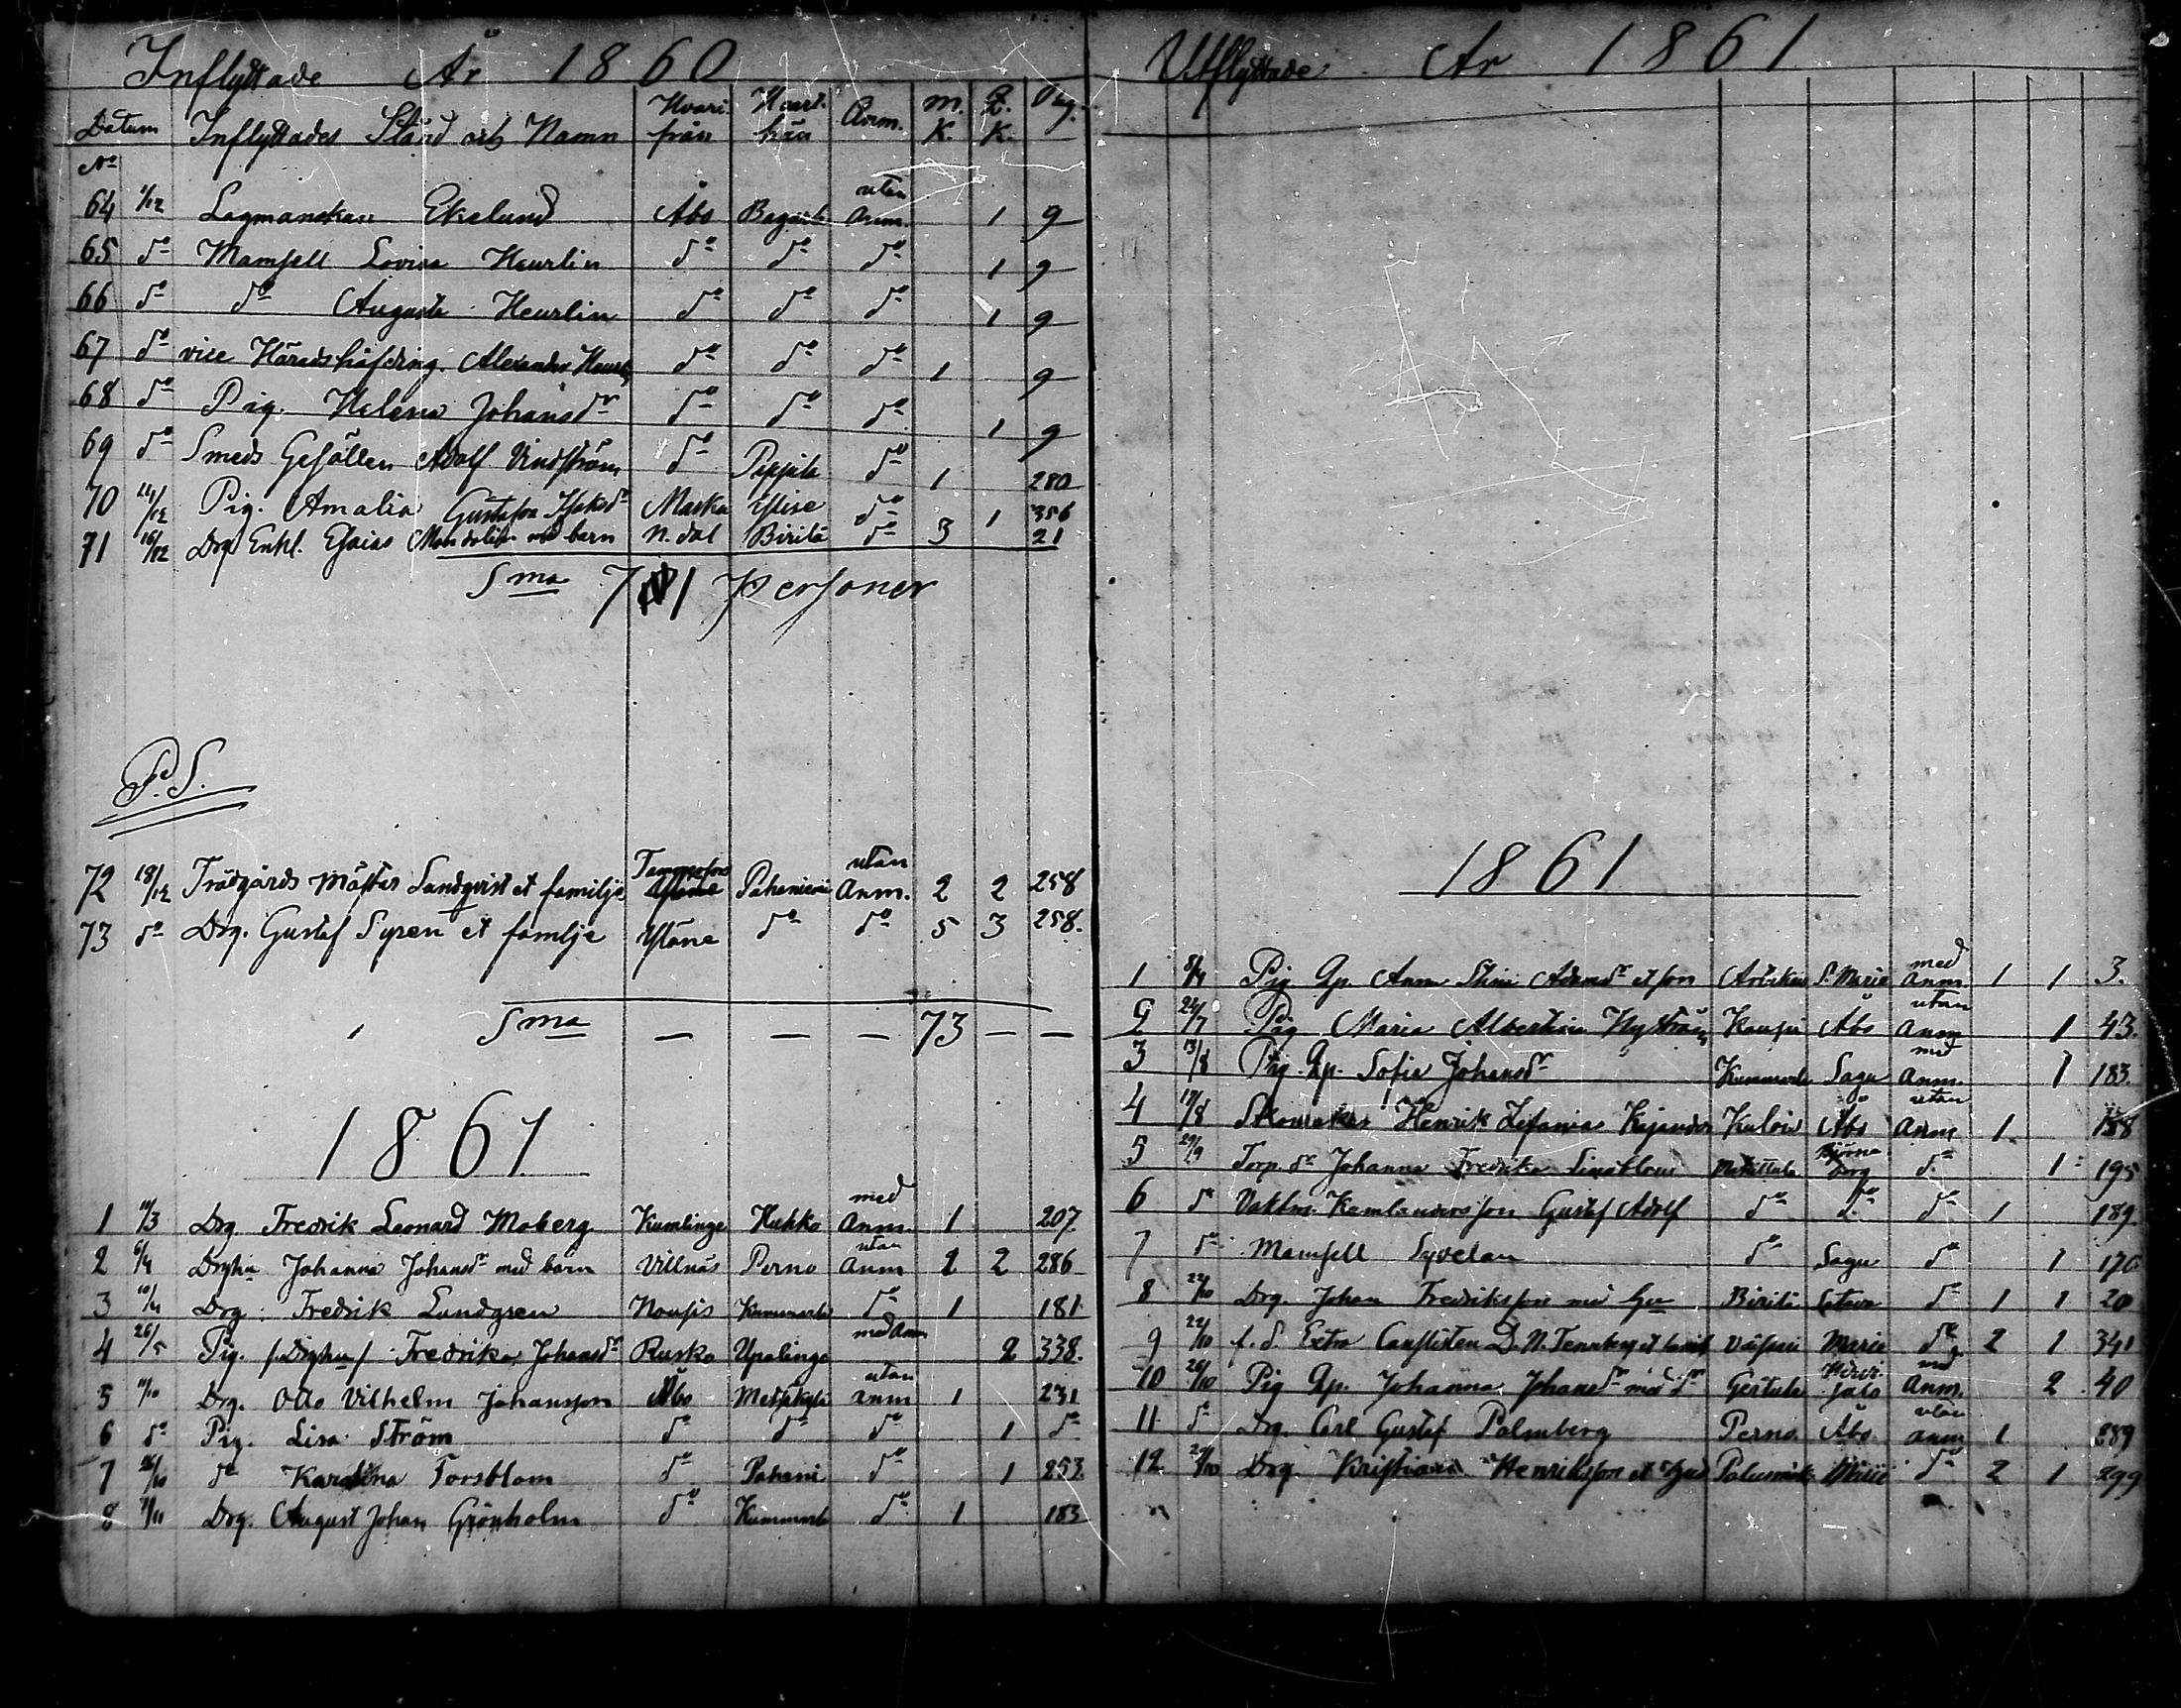 Inflyttade År 1860
Datum Inflyttades Stånd och Namn Hvari- från Hvart- hän Anm. M. K. Q. K. Pag.
No
64 1/12 Lagmanskan Ekelund Åbo utan Anm. 1 9
65 do Mamsell Lovisa Heurlin do do do 1 9
66 do do Augusta Heurlin do do do 1 9
67 do vice Häradshöfding Alexander Heurlin do do do 1 9
68 do Pig. Helena Johansdr do do do 1 9
69 do Smeds Gesällen Adolf Vindström do do 1 280
70 24/12 Pig. Amalia Gustafva Masku do 1 356
71 16/12 Drg Enkl. Esaias med barn N. dal Birilä do 3 21
Sma 71 Personer
P.S.
72 18/12 Trädgårds Mästar Sandqvist et familje Tammerfors utan Anm. 2 2 258
73 do Drg. Gustaf Syren et familje Yläne do do 5 3 258.
Sma — — — 73 — —
1861
1 11/3 Drg Fredrik Leonard Moberg Kumlinge Huhko med Anm. 1 207.
2 6/4 Johanna Johansdr med barn Villnäs Perno utan Anm 2 2 286
3 10/4 Drg. Fredrik Lundgren Nousis do 1 181
4 26/5 Pig. Fredrika Johansdr Rusko Upalinga med Anm 2 338.
5 11/10 Drg. Otto Vilhelm Johansson Åbo Metsäkylä utan anm 1 231
6 do Pig. Lisa Ström do do do 1 do
7 26/10 do Karolina Forsblom do Pahani do 1 253.
8 Drg. August Johan Grönholm do do 1 183
Utflyttade År 1861
1861
1 8/4 Pig Anna Stina Adamsdr et son S. Marie med Anm 1 1 3.
2 24/7 Pig Maria Albertina Nyström Åbo utan Anm 1 43.
3 13/8 Pig. Sofia Johansdr Sagu med Anm. 1 183.
4 17/8 Skomakar Henrik Kejander Åbo utan Anm 1
5 29/9 Torp. dr Johanna Fredrika Lindblom Björneborg do 1 195
6 do Vaktm. Kamlanders son Gustaf Adolf do do do 1 189.
7 do Mamsell Syvelan do Sagu do 1 170
8 22/10 Drg. Johan Fredriksson Birilä do 1 1 20
9 22/10 f. d. Extra Canslisten Marie do 2 1 341
10 26/10 Pig Johanna Johansdr med dr med Anm. 2 40
11 do Drg. Carl Gustaf Palmberg Perno Åbo utan anm 1 289
12 Drg. Kristian Henriksson do 2 1 299